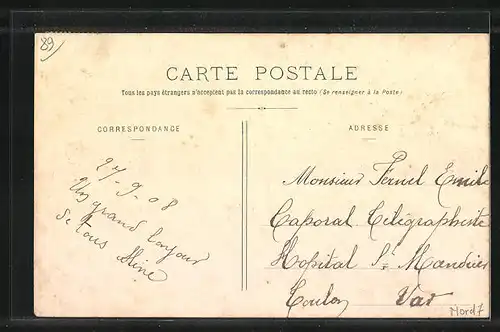 89
CARTE POSTALE
Tous les pays étrangers n'acceptent pas la correspondance au recto (Se renseigner à la Poste)
CORRESPONDANCE
27-9-08
Un grand bonjour
de tous
ADRESSE
Monsieur Emile
Caporal Télégraphiste
Hopital St Mandrier
Toulon Var